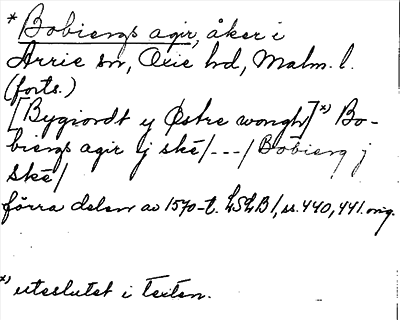 * Bobiergs agir, åker i
Arrie sn, Oxie hd, Malm. l.
(forts.)
[Bygiordt y Østre wongh] x) Bo-
biergs agir ij ske/---/Bobierg j
ske/
förra delen av 1570-t. LSLB1, ss. 440, 441. orig.
x) uteslutet i texten.